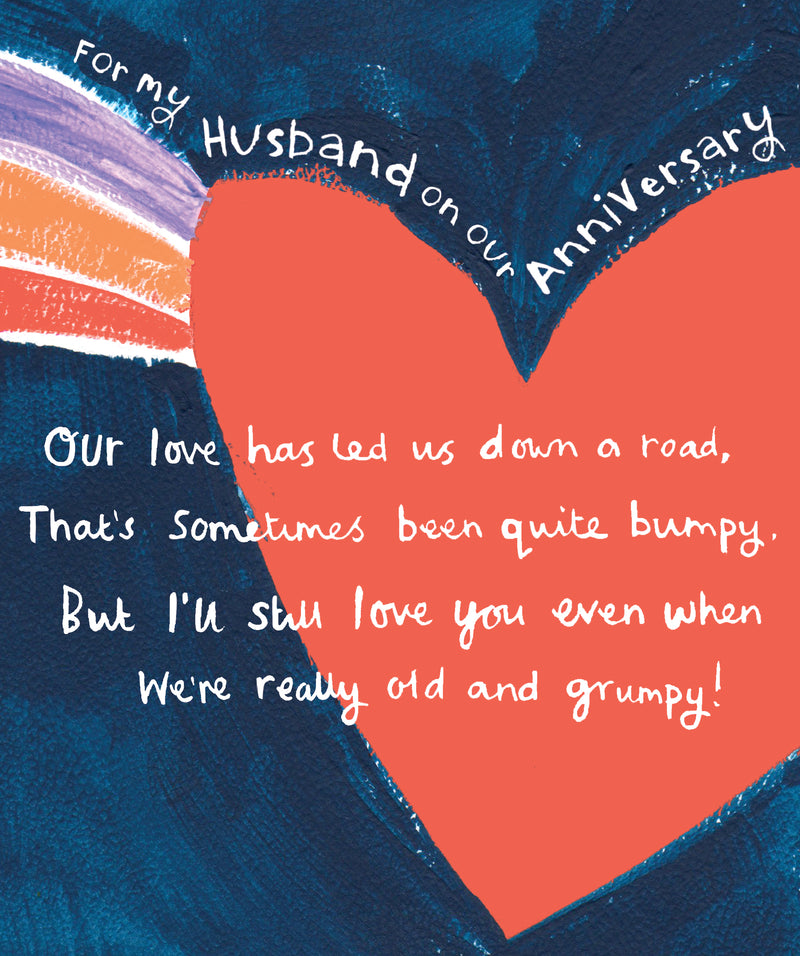 For my Husband on our Anniversary
Our love has led us down a road,
That's sometimes been quite bumpy,
But I'll still love you even when
We're really old and grumpy!